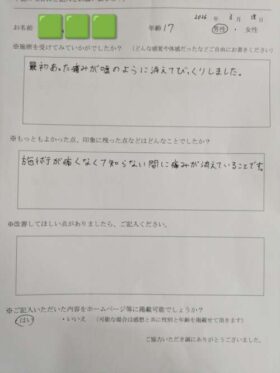 2026年 3月 18日
お名前 年齢 17 男性・女性
※施術を受けてみていかがでしたか？ (どんな感覚や体感だったなどご自由にお書きください)
最初あった痛みが嘘のように消えてびっくりしました。
※もっともよかった点、印象に残った点などはどんなことでしたか？
施術が痛くなくて知らない間に痛みが消えていることです。
※改善してほしい点がありましたら、ご記入ください。
※ご記入いただいた内容をホームページ等に掲載可能でしょうか？
はい・いいえ (可能な場合は感想と共に性別と年齢を掲載させて頂きます)
ご協力いただき誠にありがとうございました。